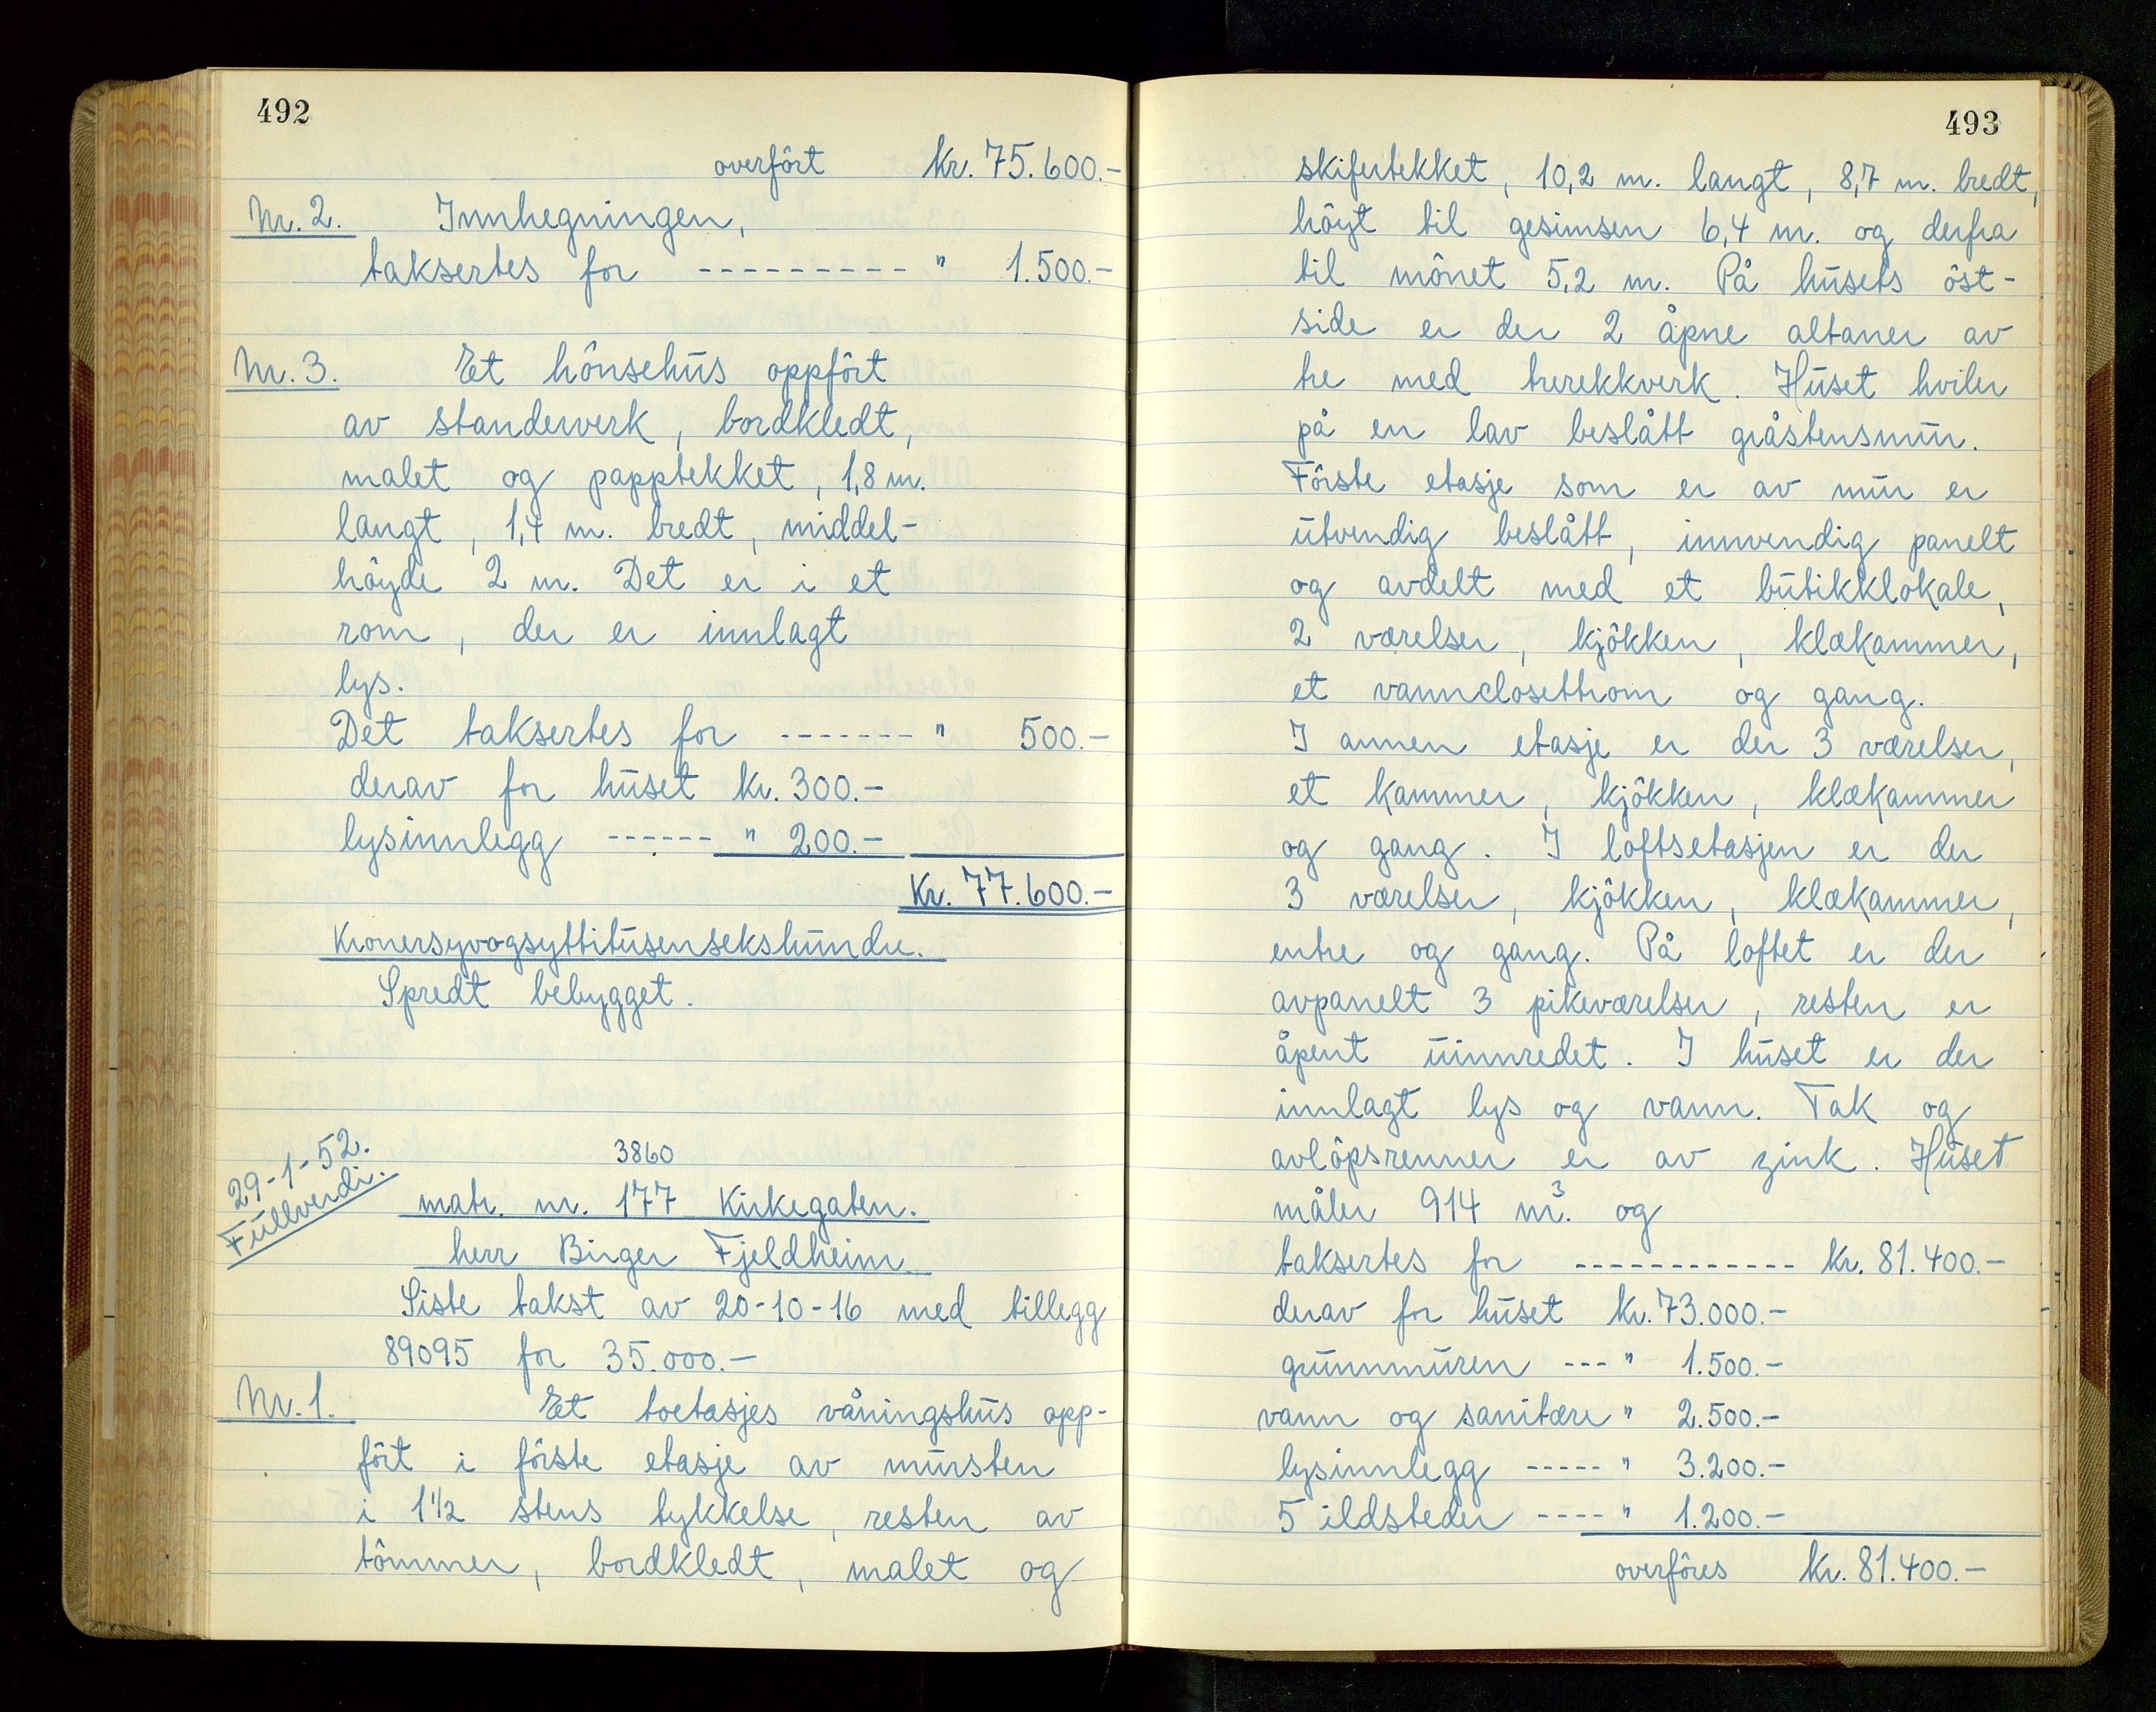 492
overfört kr. 75.600.-
Nr. 2. Innhegningen,
taksertes for --------- " 1.500.-
Nr. 3. Et hönsehus oppfört
av standerverk, bordkledt,
malet og papptekket, 1,8 m.
langt, 1,4 m. bredt, middel-
höyde 2 m. Det er i et
rom, der er innlagt
lys.
Det taksertes for ------- " 500.-
derav for huset kr. 300.-
lysinnlegg ------ " 200.-
Kr. 77.600.-
Kronersyvogsyttitusensekshundre.
Spredt bebygget.
29-1-52.
Fullverdi.
3860
matr. nr. 177 Kirkegaten.
herr Birger Fjeldheim.
Siste takst av 20-10-16 med tillegg
89095 for 35.000.-
Nr. 1. Et toetasjes våningshus opp-
fört i förste etasje av mursten
i 1 1/2 stens tykkelse, resten av
tömmer, bordkledt, malet og
493
skifertekket, 10,2 m. langt, 8,7 m. bredt,
höyt til gesimsen 6,4 m. og derfra
til mönet 5,2 m. På husets öst-
side er der 2 åpne altaner av
tre med trerekkverk. Huset hviler
på en lav beslått gråstensmur.
Förste etasje som er av mur er
utvendig beslått, innvendig panelt
og avdelt med et butikklokale,
2 værelser, kjökken, klækammer,
et vannclosettrom og gang.
I annen etasje er der 3 værelser,
et kammer, kjökken, klækammer
og gang. I loftsetasjen er der
3 værelser, kjökken, klækammer,
entre og gang. På loftet er der
avpanelt 3 pikeværelser, resten er
åpent uinnredet. I huset er der
innlagt lys og vann. Tak og
avlöpsrenner er av zink. Huset
måler 914 m³. og
taksertes for ------------ kr. 81.400.-
derav for huset kr. 73.000.-
grunnmuren --- " 1.500.-
vann og sanitære " 2.500.-
lysinnlegg ----- " 3.200.-
5 ildsteder ---- " 1.200.-
overföres kr. 81.400.-